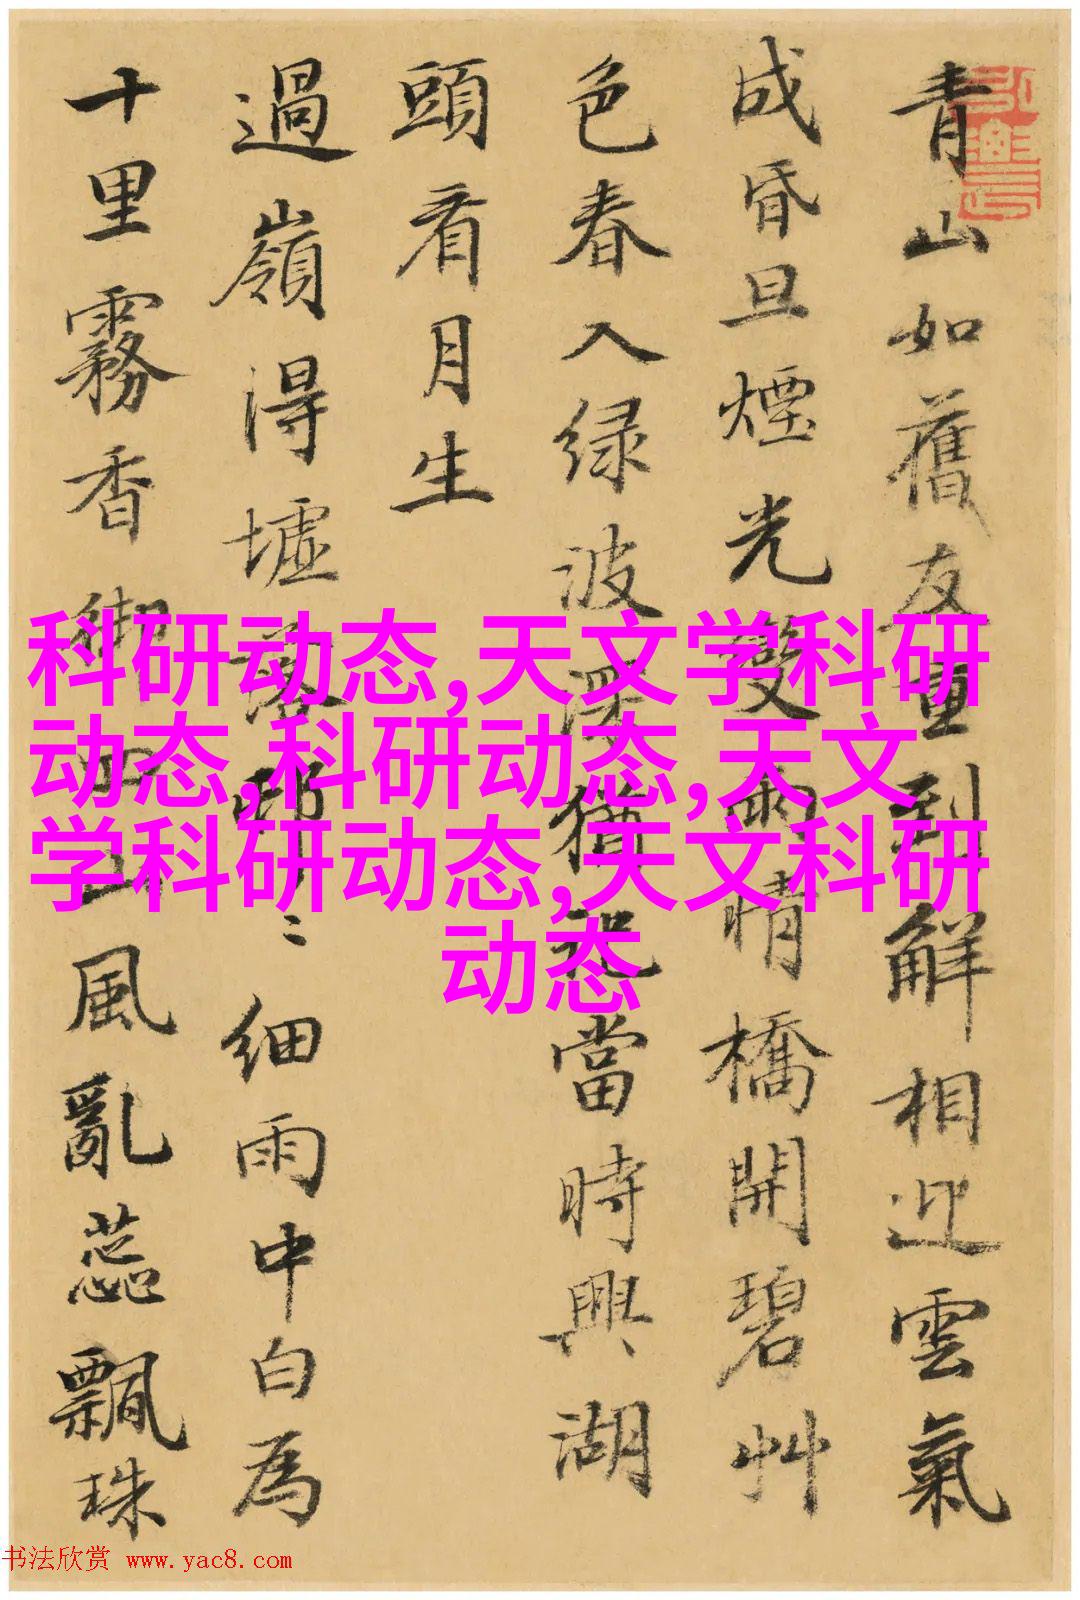 青山如舊友重到解相迎雲氣
成昏旦煙光變雨晴橋開碧艸
色春入绿波深猶記當時興湖
頭看月生
過嶺得墟落邨〻細雨中白為
十里霧香山風亂蕊飄珠
科研动态,天文学科研
动态,科研动态,天文
学科研动态,天文科研
动态
书法欣赏 www.yac8.com